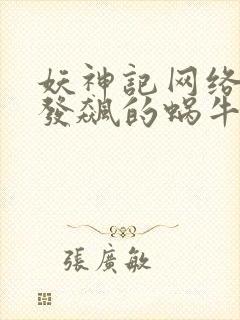 妖神記网络
發飙的蜗牛
張廣敏